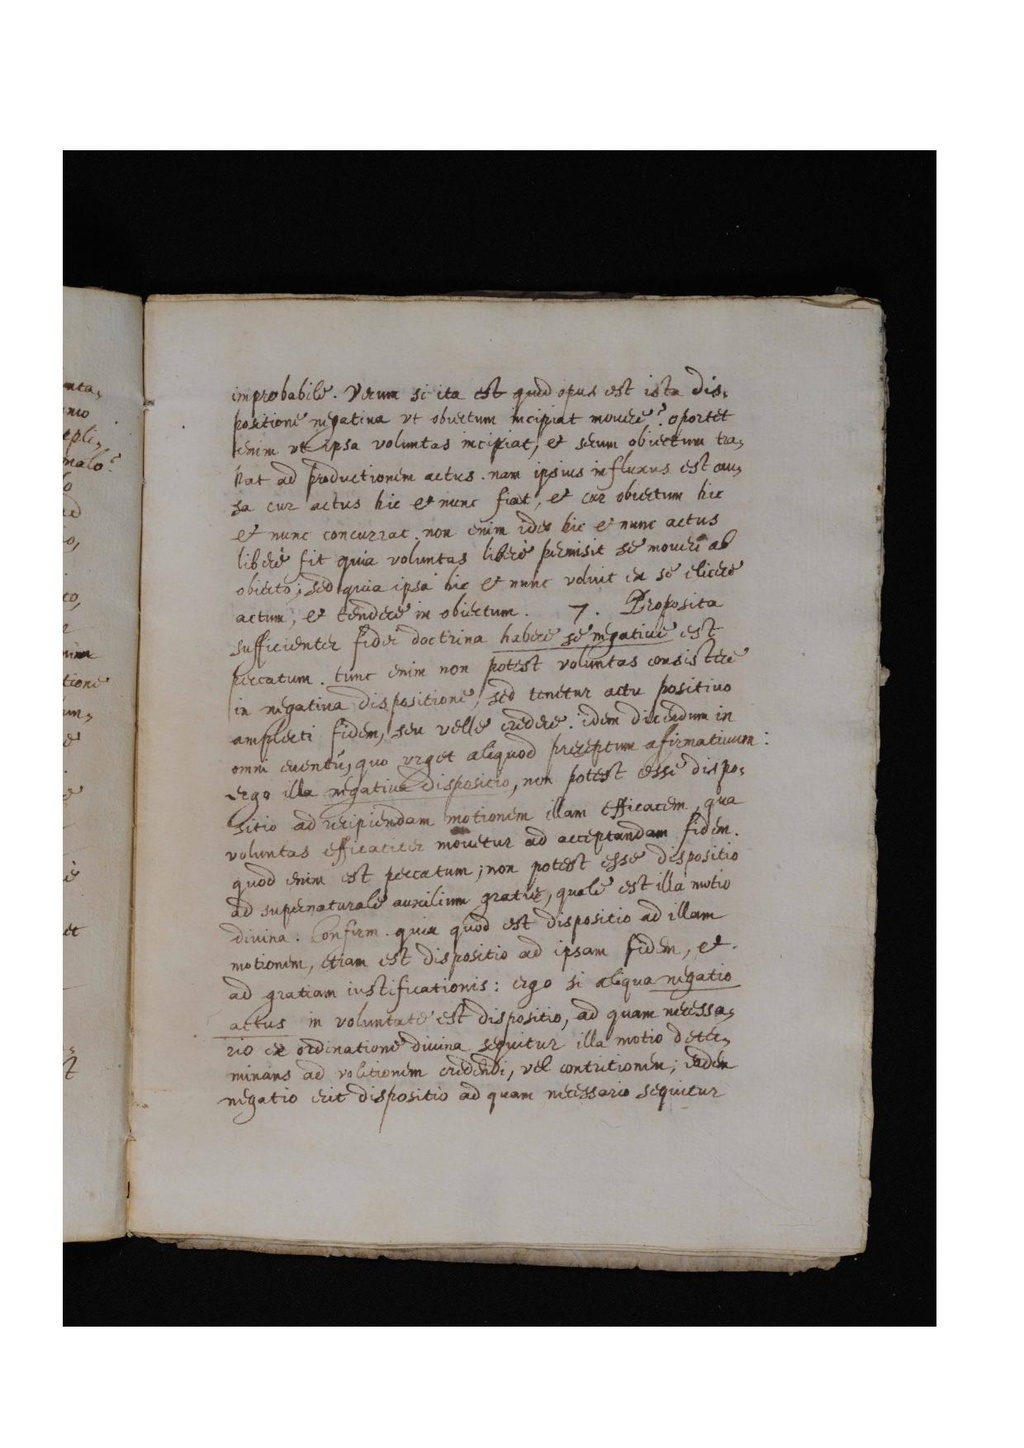 improbabile. Verum si ita est quid opus est ista dis-
positione negatiua vt obiectum incipiat mouere? oportet
enim vt ipsa voluntas incipiat, et secum obiectum tra-
hat ad productionem actus. nam ipsius influxus est cau-
sa cur actus hic et nunc fiat, et cur obiectum hic
et nunc concurrat. non enim ideo hic et nunc actus
liberè fit quia voluntas liberè permisit se moueri ab
obiecto; sed quia ipsa hic et nunc voluit ex se elicere
actum, et tendere in obiectum. 7. Proposita
sufficienter fidei doctrina habere se negatiuè est
peccatum. tunc enim non potest voluntas consistere
in negatiua dispositione, sed tenetur actu positiuo
amplecti fidem, seu velle credere. idem dicendum in
omni euentu, quo vrget aliquod preceptum afirmatiuum:
ergo illa negatiua dispositio, non potest esse dispo-
sitio ad recipiendam motionem illam efficacem, qua
voluntas efficaciter mouetur ad acceptandam fidem.
quod enim est peccatum; non potest esse dispositio
ad supernaturale auxilium gratie, quale est illa motio
diuina. Confirm. quia quod est dispositio ad illam
motionem, etiam est dispositio ad ipsam fidem, et
ad gratiam iustificationis: ergo si aliqua negatio
actus in voluntate est dispositio, ad quam necessa-
rio ex ordinatione diuina sequitur illa motio deter-
minans ad volitionem credendi, vel contritionem; eadem
negatio erit dispositio ad quam necessario sequitur